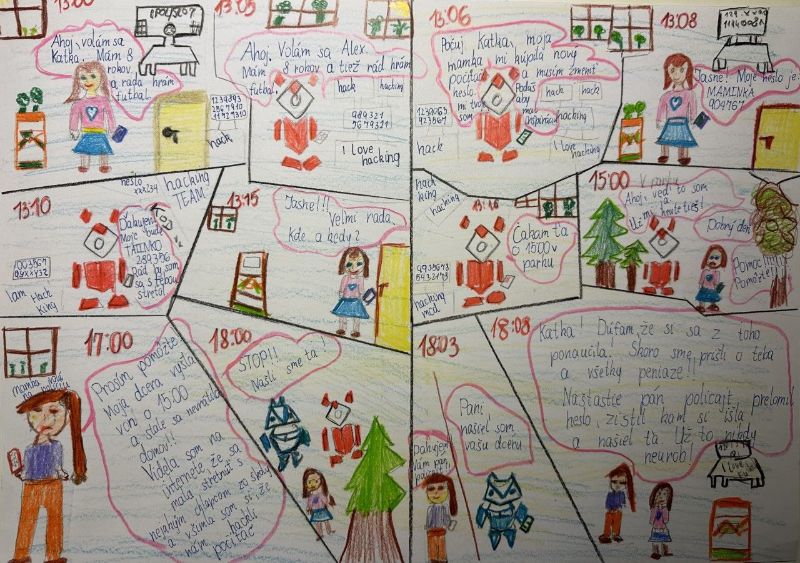 13:00
Ahoj, volám sa
Katka. Mám 8
rokov,
a rada hrám
futbal.
hack
13:05
Ahoj. Volám sa Alex.
Mám 8 rokov a tiež rád hrám
futbal.
hack
hacking
989321
5679321
I love
hacking
13:06
Počuj Katka, moja
mamka mi kúpila nový
počítač
a musím zmeniť
heslo.
hack
hack
hacking
hack
I love
hacking
13:08
Jasne! Moje heslo je:
MAMINKA
904767
13:10
heslo
hacking
TEAM
Ďakujem
Moje bude
TATINKO
289356
Rád by som
sa s tebou
stretol.
I am Hack
king
13:15
Jasne!!!
Veľmi rada.
Kde a kedy?
hack
king
hacking
Čakám ťa
1500 v
parku
hacking
15:00
Ahoj, veď to som
ja
Dobrý deň
Pomoc!
Pomôžte!!
17:00
mamka volá
na políciu
Prosím pomôžte
Moja dcéra vyšla
von o 15:00
a stále sa nevrátila
domov!!
Videla som na
internete že sa
mala stretnúť s
nejakým chlapcom zo školy
a všimla som si, že
nám hackli
počítač
18:00
STOP!!!
Našli sme ťa!
18:03
Ďakujem
Vám pán
policajt
Pani
našiel som
vašu dcéru
18:08
Katka! Dúfam, že si sa z toho
ponaučila! Skoro sme prišli o teba
a všetky peniaze!!
Našťastie pán policajt prelomil
heslo, zistil kam si išla
a našiel ťa. Už to nikdy
neurob!
I love